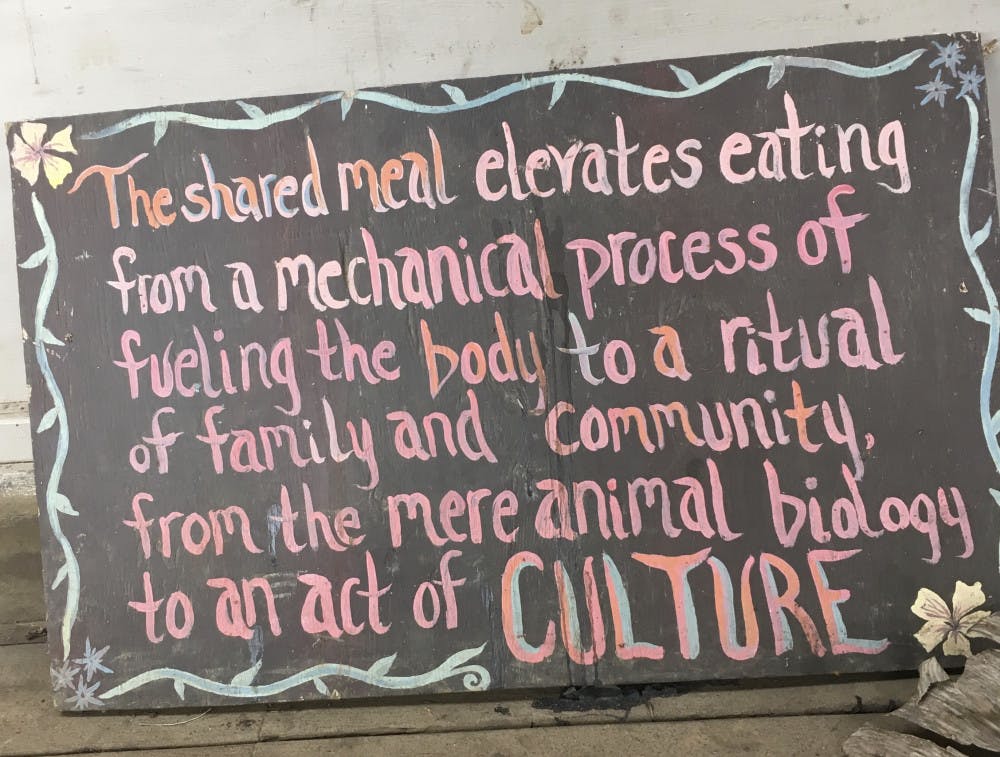 The shared meal elevates eating
from a mechanical process of
fueling the body to a ritual
of family and community,
from the mere animal biology
to an act of CULTURE